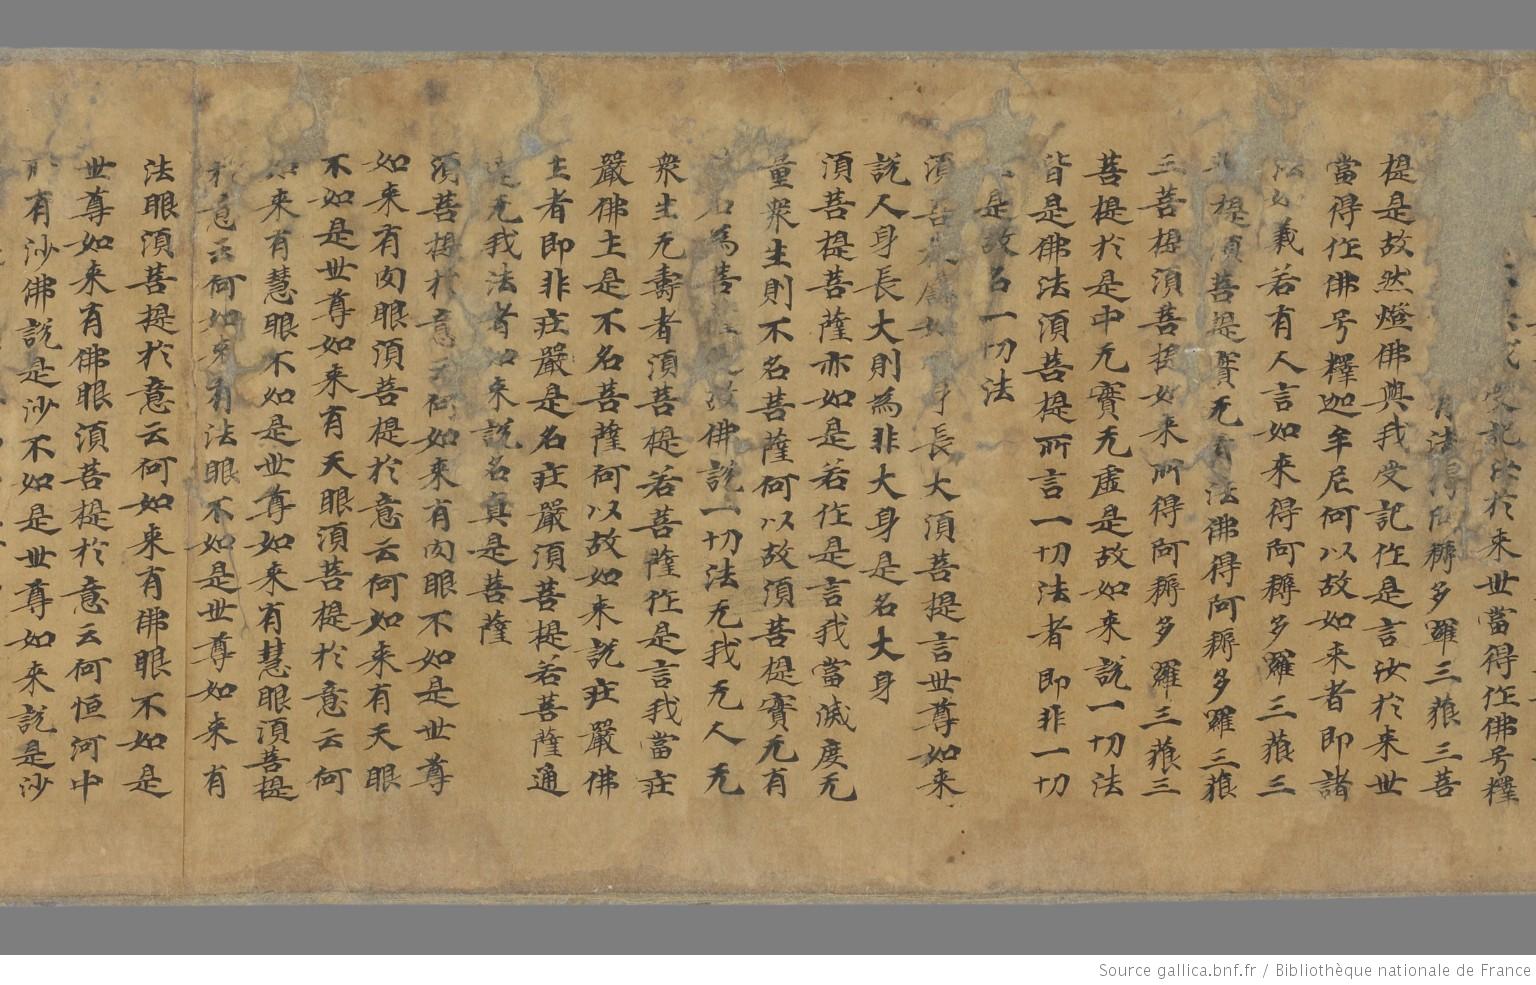 受記於來世當得作佛号釋
有法得阿耨多羅三藐三菩
提是故然燈佛與我受記作是言汝於来世
當得作佛号釋迦牟尼何以故如来者即諸
法如義若有人言如来得阿耨多羅三藐三
提須菩提實无有法佛得阿耨多羅三藐
三菩提須菩提如来所得阿耨多羅三藐三
菩提於是中无實无虛是故如来說一切法
皆是佛法須菩提所言一切法者即非一切
是故名一切法
須菩如身長大須菩提言世尊如来
說人身長大則為非大身是名大身
須菩提菩薩亦如是若作是言我當滅度无
量衆生則不名菩薩何以故須菩提實无有
名為菩故佛說一切法无我无人无
衆生无壽者須菩提若菩薩作是言我當莊
嚴佛土是不名菩薩何以故如来說莊嚴佛
土者即非莊嚴是名莊嚴須菩提若菩薩通
達无我法者如来說名真是菩薩
須菩提於意云何如来有肉眼不如是世尊
如来有肉眼須菩提於意云何如来有天眼
不如是世尊如来有天眼須菩提於意云何
如来有慧眼不如是世尊如来有慧眼須菩提
於意云何如来有法眼不如是世尊如来有
法眼須菩提於意云何如来有佛眼不如是
世尊如来有佛眼須菩提於意云何恒河中
所有沙佛說是沙不如是世尊如来說是沙
Source gallica.bnf.fr / Bibliothèque nationale de France